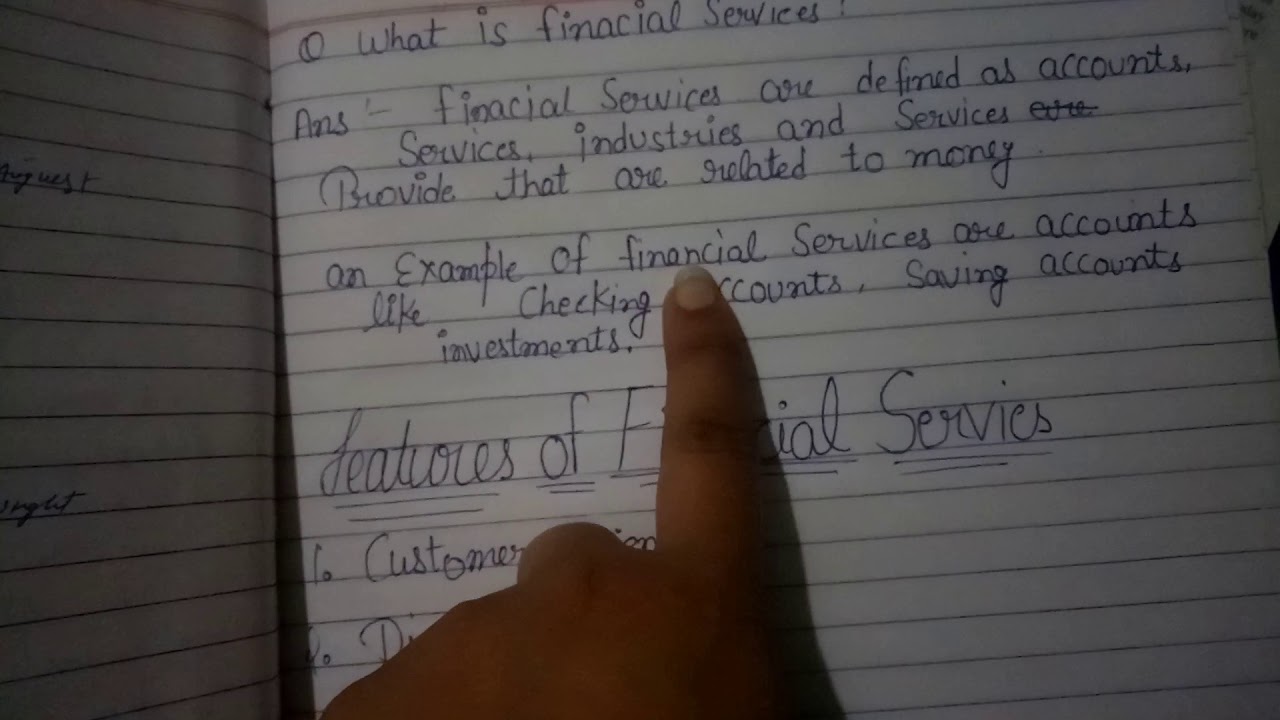 ① What is finacial Services?
Ans :- finacial Services are defined as accounts,
Services, industries and Services are
Provide that are related to money.
an Example of financial Services are accounts
like Checking ccounts, Saving accounts
investments.
features of F cial Servics
1. Customer
2. Di